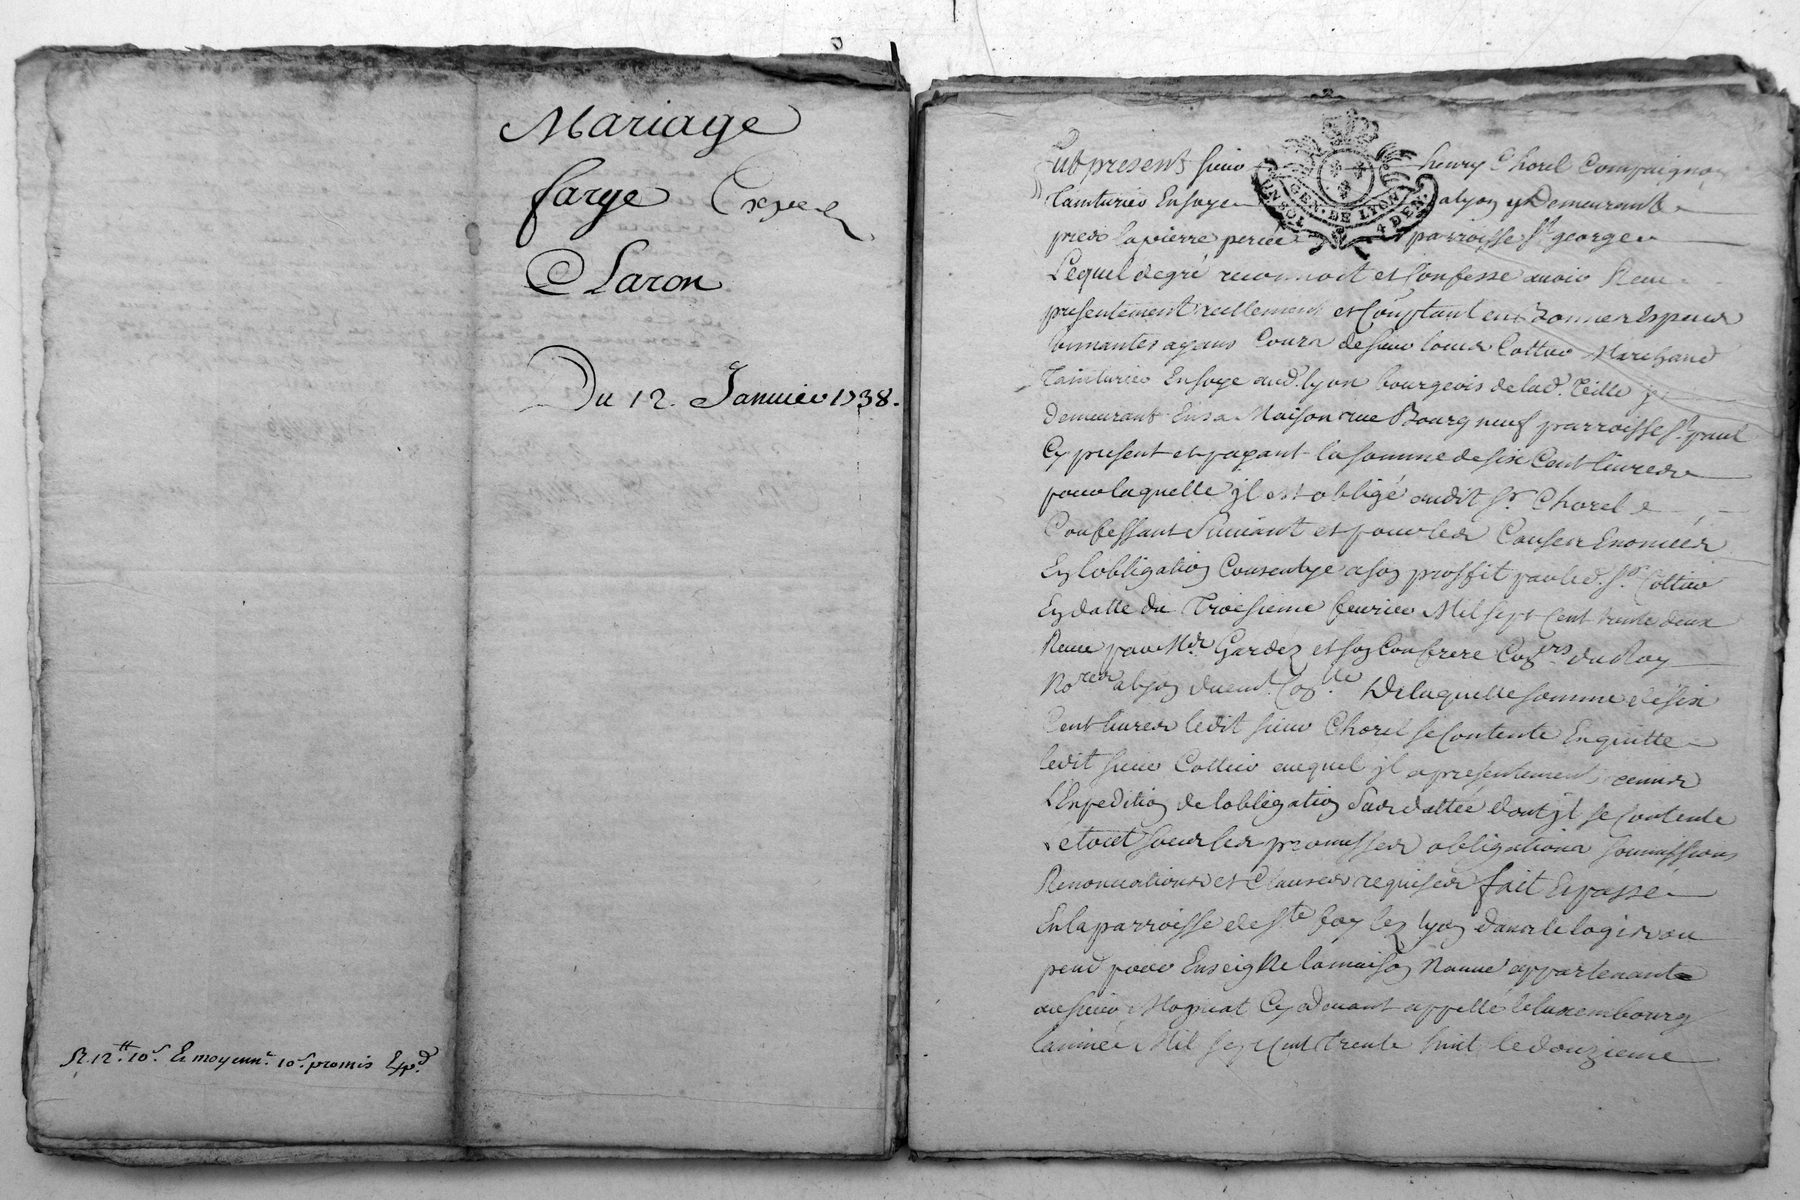 Mariage
farge Exped
Claron
Du 12. Januier 1738.
R. 12tt. 10s. & moyennt. 10s. promis Expd.
GEN. DE LYON
UN SOL 4 DEN.
fut present sieur henry Chorel Compaignon
tainturier En soye alyon y Demeurant
pres la pierre percée parroisse st george
Lequel de gré reconnoit et Confesse auoir Receu
presentement reellement et Comptant en bonnes Especes
ayans Cours de sieur louis Cottier Marchand
Tainturier En soye aud. lyon bourgeois de lad. Ville y
demeurant En sa Maison rue Bourg neuf parroisse st paul
Cy present et payant la somme de six Cent liures
pour laquelle jl est obligé audit sr. Chorel
Confessant suiuant et pour les Causes Enoncées
En l'obligation Consentye a son proffit par led. sr. Cottier
En datte du Troisieme feurier Mil sept Cent trente deux
Receue par Me Gardez et son Confrere Coners du Roy
Nores alyon duemt. Conlle De laquelle somme de six
Cent liures ledit sieur Chorel se Contente En quitte
ledit sieur Cottier auquel jl a presentement remis
L'Expedition de l'obligation sus dattée dont jl se Contente
et tout sous les promesses obligations soumissions
Renonciations et Clauses requises fait Et passé
En la parroisse de ste foy lez lyon dans le logis ou
pend pour Enseigne la maison Rouue appartenant
au sieur Mognat Cy deuant appellé le luxembourg
l'année Mil sept Cent trente huit le douzieme